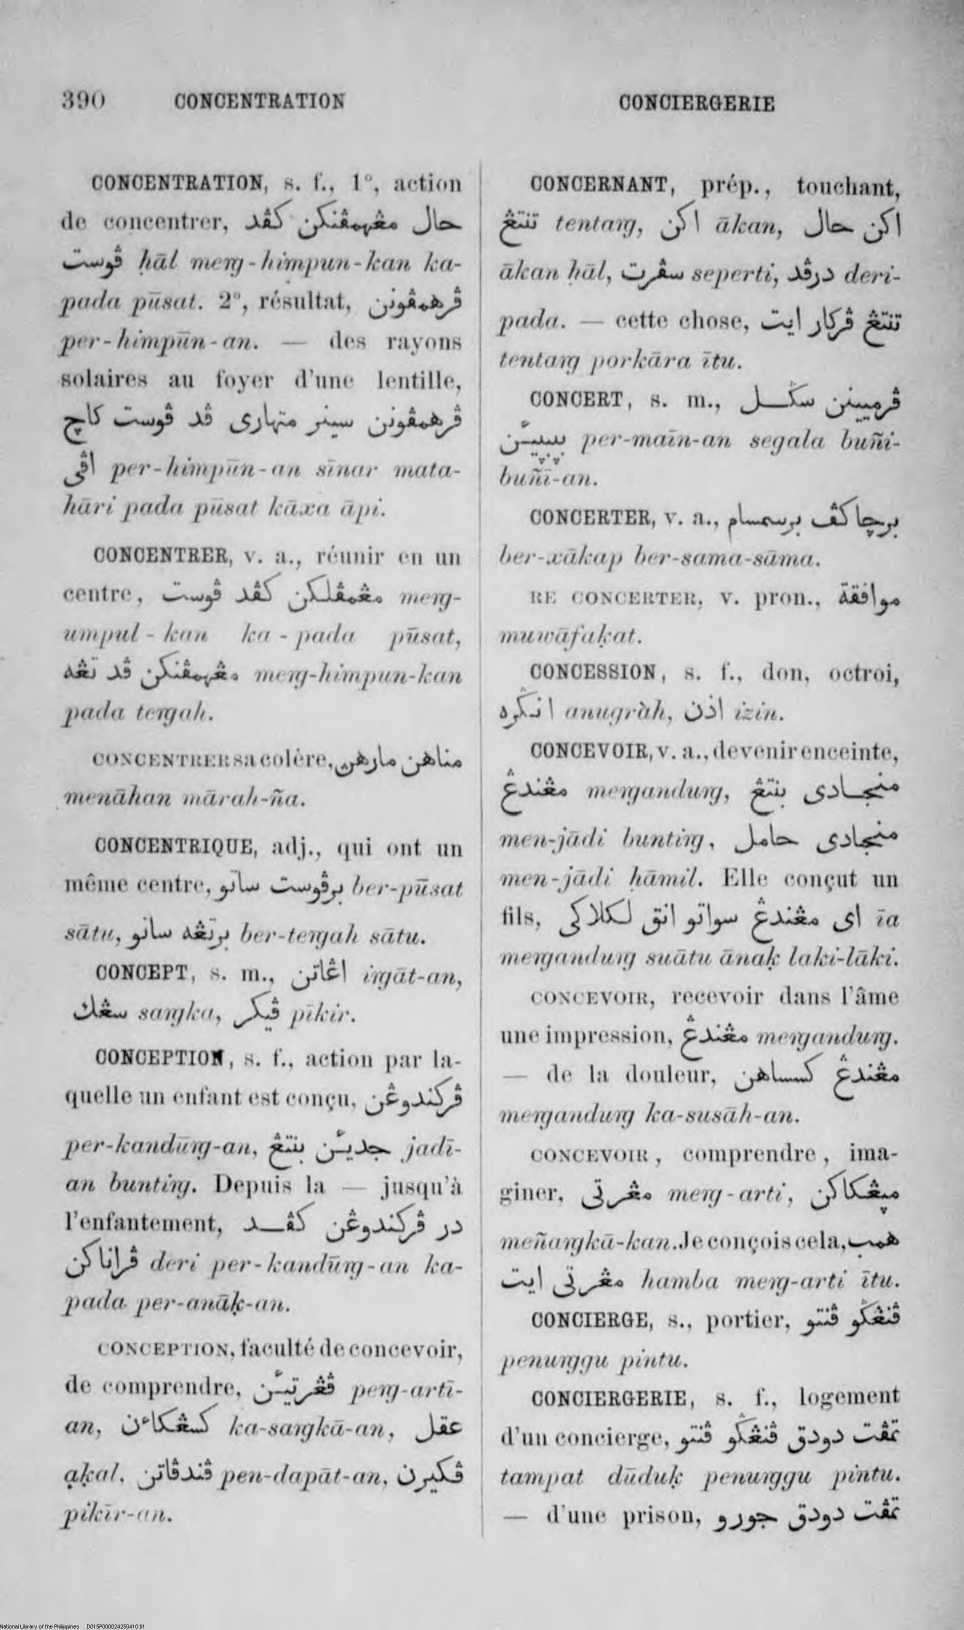 390 CONCENTRATION
CONCIERGERIE
CONCENTRATION, s. f., 1°, action
de concentrer, حال مڠهمڤنكن كڤد
ڤوست ḥāl meng-himpun-kan ka-
pada pūsat. 2°, résultat, ڤرهمڤونن
per-himpūn-an. — des rayons
solaires au foyer d'une lentille,
ڤرهمڤونن سينر متهارى ڤد ڤوست كاچ
اڤى per-himpūn-an sīnar mata-
hāri pada pūsat kāxa āpi.
CONCENTRER, v. a., réunir en un
centre, مڠمڤلكن كڤد ڤوست meng-
umpul-kan ka-pada pūsat,
مڠهمڤنكن ڤد تڠه meng-himpun-kan
pada tengah.
CONCENTRER sa colère, مناهن مارهن
menāhan mārah-ña.
CONCENTRIQUE, adj., qui ont un
même centre, برڤوست ساتو ber-pūsat
sātu, برتڠه ساتو ber-tengah sātu.
CONCEPT, s. m., اڠاتن ingāt-an,
سڠك sangka, ڤيكر pīkir.
CONCEPTION, s. f., action par la-
quelle un enfant est conçu, ڤركندوڠن
per-kandūng-an, جديـن بنتڠ jadī-
an bunting. Depuis la — jusqu'à
l'enfantement, در ڤركندوڠن كڤـد
ڤراناكن deri per-kandūng-an ka-
pada per-anāḳ-an.
CONCEPTION, faculté de concevoir,
de comprendre, ڤڠرتيـن peng-artī-
an, كسڠكاءن ka-sangkā-an, عقل
aḳal, ڤندڤاتن pen-dapāt-an, ڤكيرن
pikīr-an.
CONCERNANT, prép., touchant,
تنتڠ tentang, اكن ākan, اكن حال
ākan ḥāl, سڤرت seperti, درڤد deri-
pada. — cette chose, تنتڠ ڤركار ايت
tentang porkāra ītu.
CONCERT, s. m., ڤرمينن سكـل
per-maīn-an segala buñi-
buñī-an.
CONCERTER, v. a., برچاكڤ برسمسام
ber-xākap ber-sama-sāma.
SE CONCERTER, v. pron., موافقة
muwāfaḳat.
CONCESSION, s. f., don, octroi,
انڬره anugrāh, اذن izin.
CONCEVOIR, v. a., devenir enceinte,
مڠندڠ mengandung, منجـادى بنتڠ
men-jādi bunting, منجادى حامل
men-jādi ḥāmil. Elle conçut un
fils, اى مڠندڠ سواتو انق لكلاكى īa
mengandung suātu ānaḳ laki-lāki.
CONCEVOIR, recevoir dans l'âme
une impression, مڠندڠ mengandung.
— de la douleur, مڠندڠ كسساهن
mengandung ka-susāh-an.
CONCEVOIR, comprendre, ima-
giner, مڠرتى meng-arti,
meñangkā-kan. Je conçois cela, همب
مڠرتى ايت hamba meng-arti ītu.
CONCIERGE, s., portier, ڤنڠڬو ڤنتو
penunggu pintu.
CONCIERGERIE, s. f., logement
d'un concierge, تمڤت دودق ڤنڠڬو ڤنتو
tampat dūduḳ penunggu pintu.
— d'une prison, تمڤت دودق جورو
National Library of the Philippines